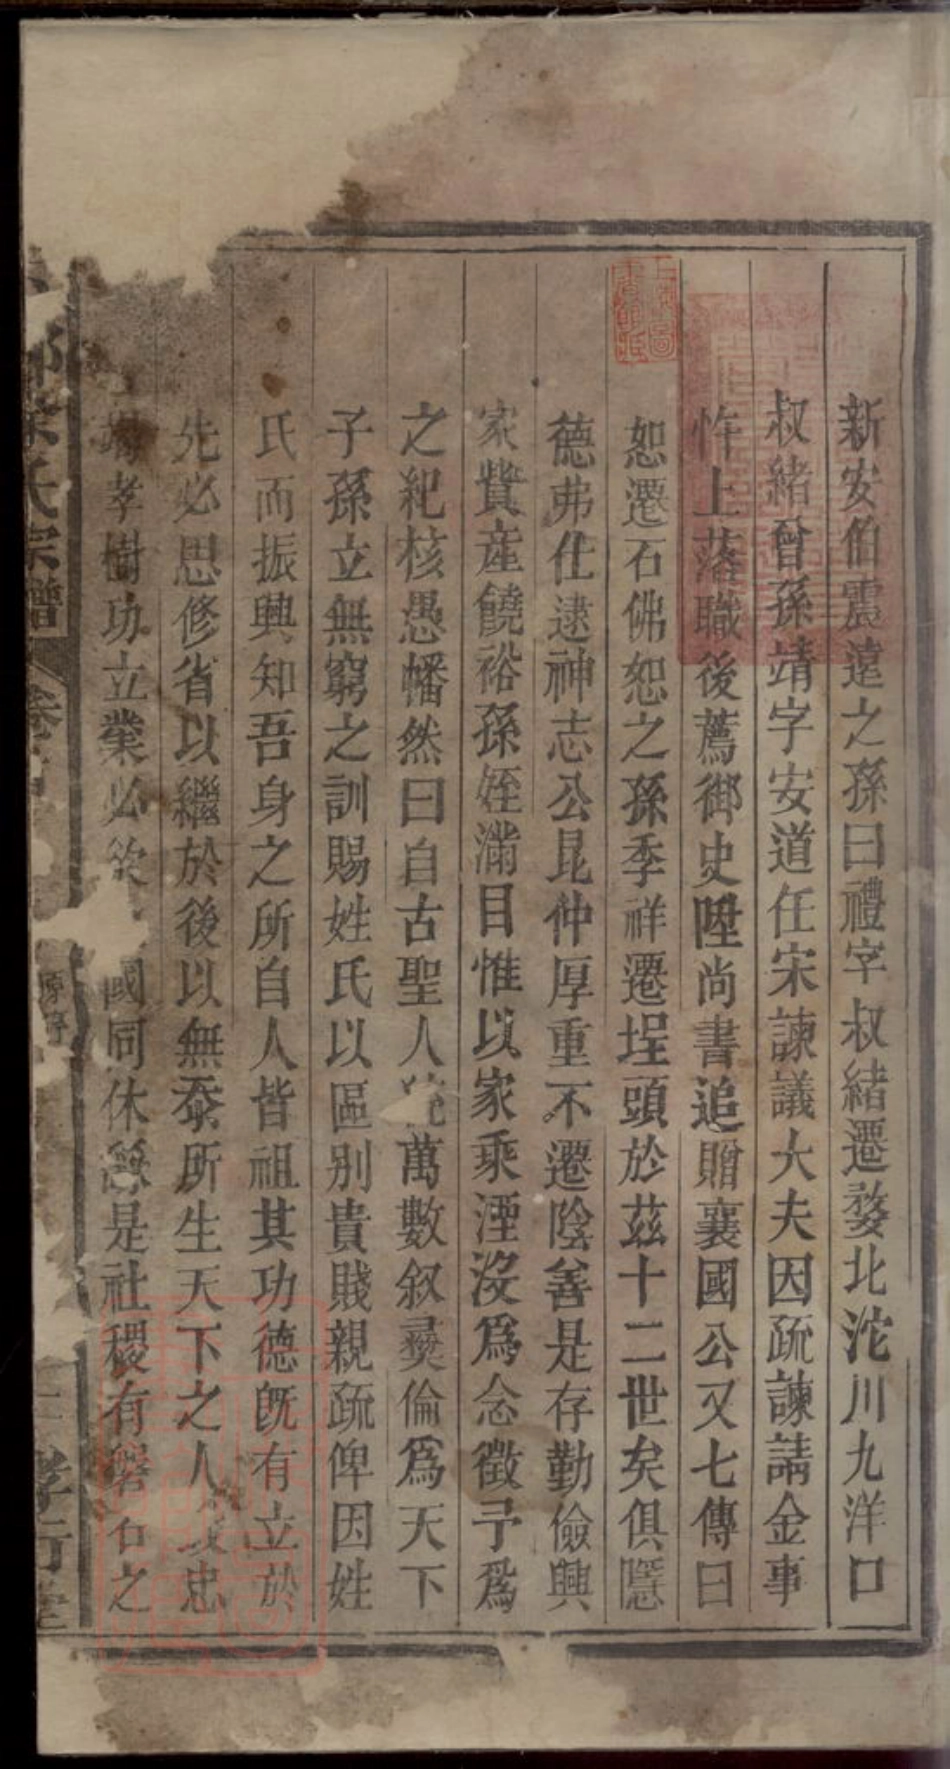 新安伯震遠之孫曰禮字叔緒遷婺北沱川九洋口
叔緒曾孫靖字安道任宋諫議大夫因疏諫請金事
忤上落職後薦御史陞尚書追贈襄國公又七傳曰
恕遷石佛恕之孫季祥遷埕頭於茲十二世矣俱隱
德弗仕逮神志公昆仲厚重不遷陰善是存勤儉興
家貲產饒裕孫姪滿目惟以家乘湮沒爲念徵予爲
之紀核愚幡然曰自古聖人萬數叙彝倫爲天下
子孫立無窮之訓賜姓氏以區別貴賤親疏俾因姓
氏而振興知吾身之所自人皆祖其功德旣有立於
先必思修省以繼於後以無忝所生天下之人忠
孝樹功立業必國同休是社稷有磐石之
氏宗譜
孝行堂